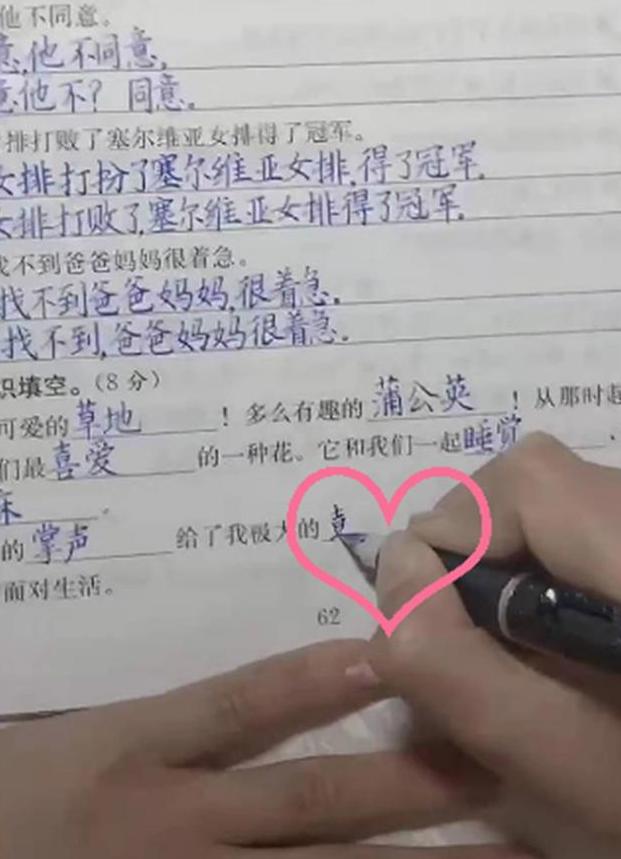 他不同意。
意,他不同意。
意他不?同意。
排打败了塞尔维亚女排得了冠军。
女排打扮了塞尔维亚女排,得了冠军。
女排打败了,塞尔维亚女排得了冠军。
找不到爸爸妈妈很着急。
找不到爸爸妈妈,很着急。
找不到,爸爸妈妈很着急。
识填空。(8分)
可爱的草地!多么有趣的蒲公英!从那时起
们最喜爱的一种花。它和我们一起睡觉、
床。
的掌声给了我极大的
面对生活。
62